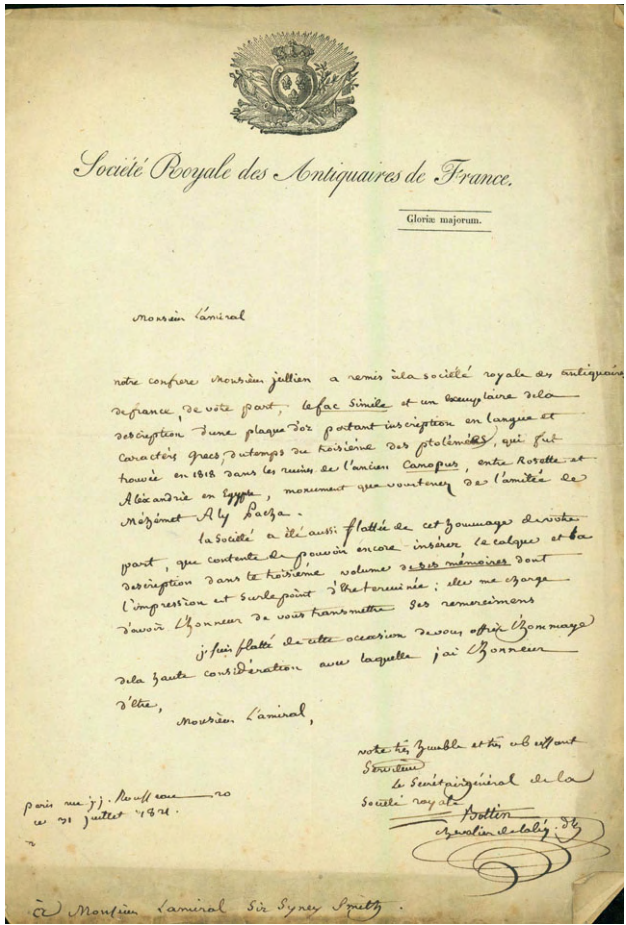 Société Royale des Antiquaires de France.
Gloriæ majorum.
Monsieur L'amiral
notre confrere Monsieur jullien a remis à la société royale des antiquaires
de france, de votre part, le fac Simile et un exemplaire de la
description d'une plaque d'or portant inscription en langue et
caracteres grecs, du temps du troisième des ptolémées, qui fut
trouvée en 1818 dans les ruines de l'ancien Canopus, entre Rosette et
Alexandrie en Egypte, monument que vous tenez de l'amitée de
Méhémet Aly Pacha.
la Société a été aussi flattée de cet hommage de votre
part, que contente de pouvoir encore insérer le calque et la
description dans le troisième volume de ses mémoires dont
l'impression est sur le point d'être terminée ; elle me charge
d'avoir l'honneur de vous transmettre ses remercimens
je suis flatté de cette occasion de vous offrir l'hommage
de la haute considération avec laquelle j'ai l'honneur
d'être,
Monsieur L'amiral,
votre très humble et très obeissant
Serviteur
Le Secrétaire général de la
Société royale
Bottin
chevalier de la lég. d'h
paris rue j.j. Rousseau 20
ce 31 juillet 1821.
à Monsieur L'amiral Sir Syney Smith.